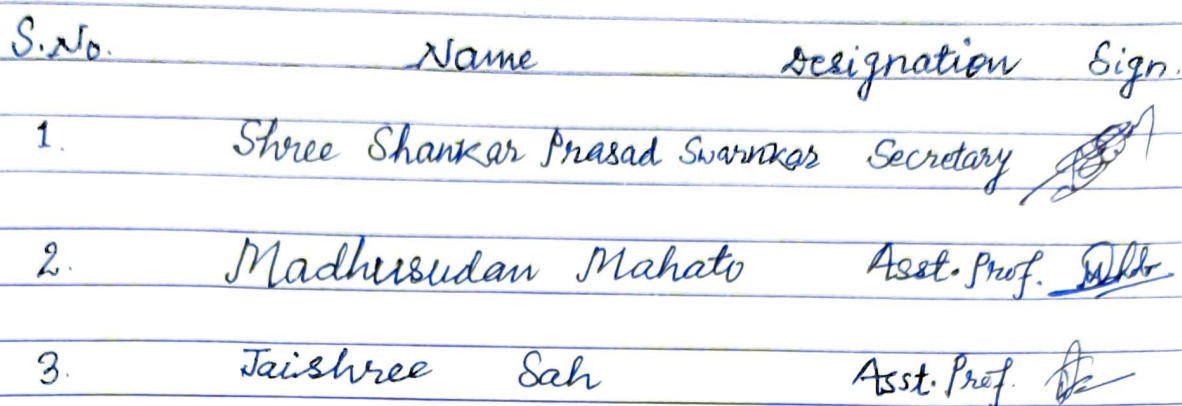 S.No. Name Designation Sign.
1. Shree Shankar Prasad Swarnkar Secretary
2. Madhusudan Mahato Asst. Prof.
3. Jaishree Sah Asst. Prof.